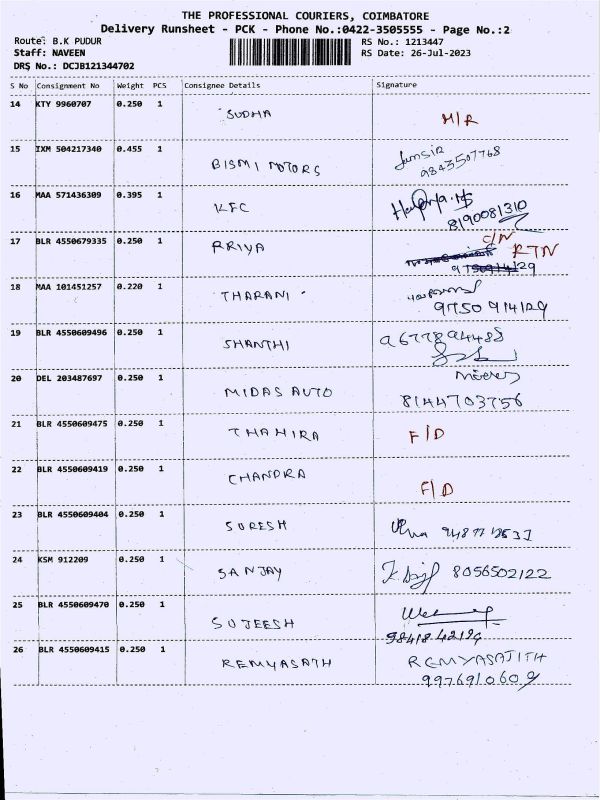 THE PROFESSIONAL COURIERS, COIMBATORE
Delivery Runsheet - PCK - Phone No.:0422-3505555 - Page No.:2
Route: B.K PUDUR RS No.: 1213447
Staff: NAVEEN RS Date: 26-Jul-2023
DRS No.: DCJB121344702
S No Consignment No Weight PCS Consignee Details Signature
14 KTY 9960707 0.250 1 SUDHA H/R
15 IXM 504217340 0.455 1 BISMI MOTORS Jumsir
9843507768
16 MAA 571436309 0.395 1 KFC
8190081310
17 BLR 4550679335 0.250 1 PRIYA C/N RTN
18 MAA 101451257 0.220 1 THARANI
9750 914129
19 BLR 4550609496 0.250 1 SHANTHI
20 DEL 203487697 0.250 1 MIDAS AUTO
8144703756
21 BLR 4550609475 1 0.250 THAHIRA F/D
22 BLR 4550609419 0.250 1 CHANDRA F/D
23 BLR 4550609404 0.250 1 SURESH
24 KSM 912209 0.250 1 SANJAY 8056502122
25 BLR 4550609470 0.250 1 SUJEESH
9841842194
26 BLR 4550609415 0.250 1 REMYASATH REMYASAJITH
9976910609